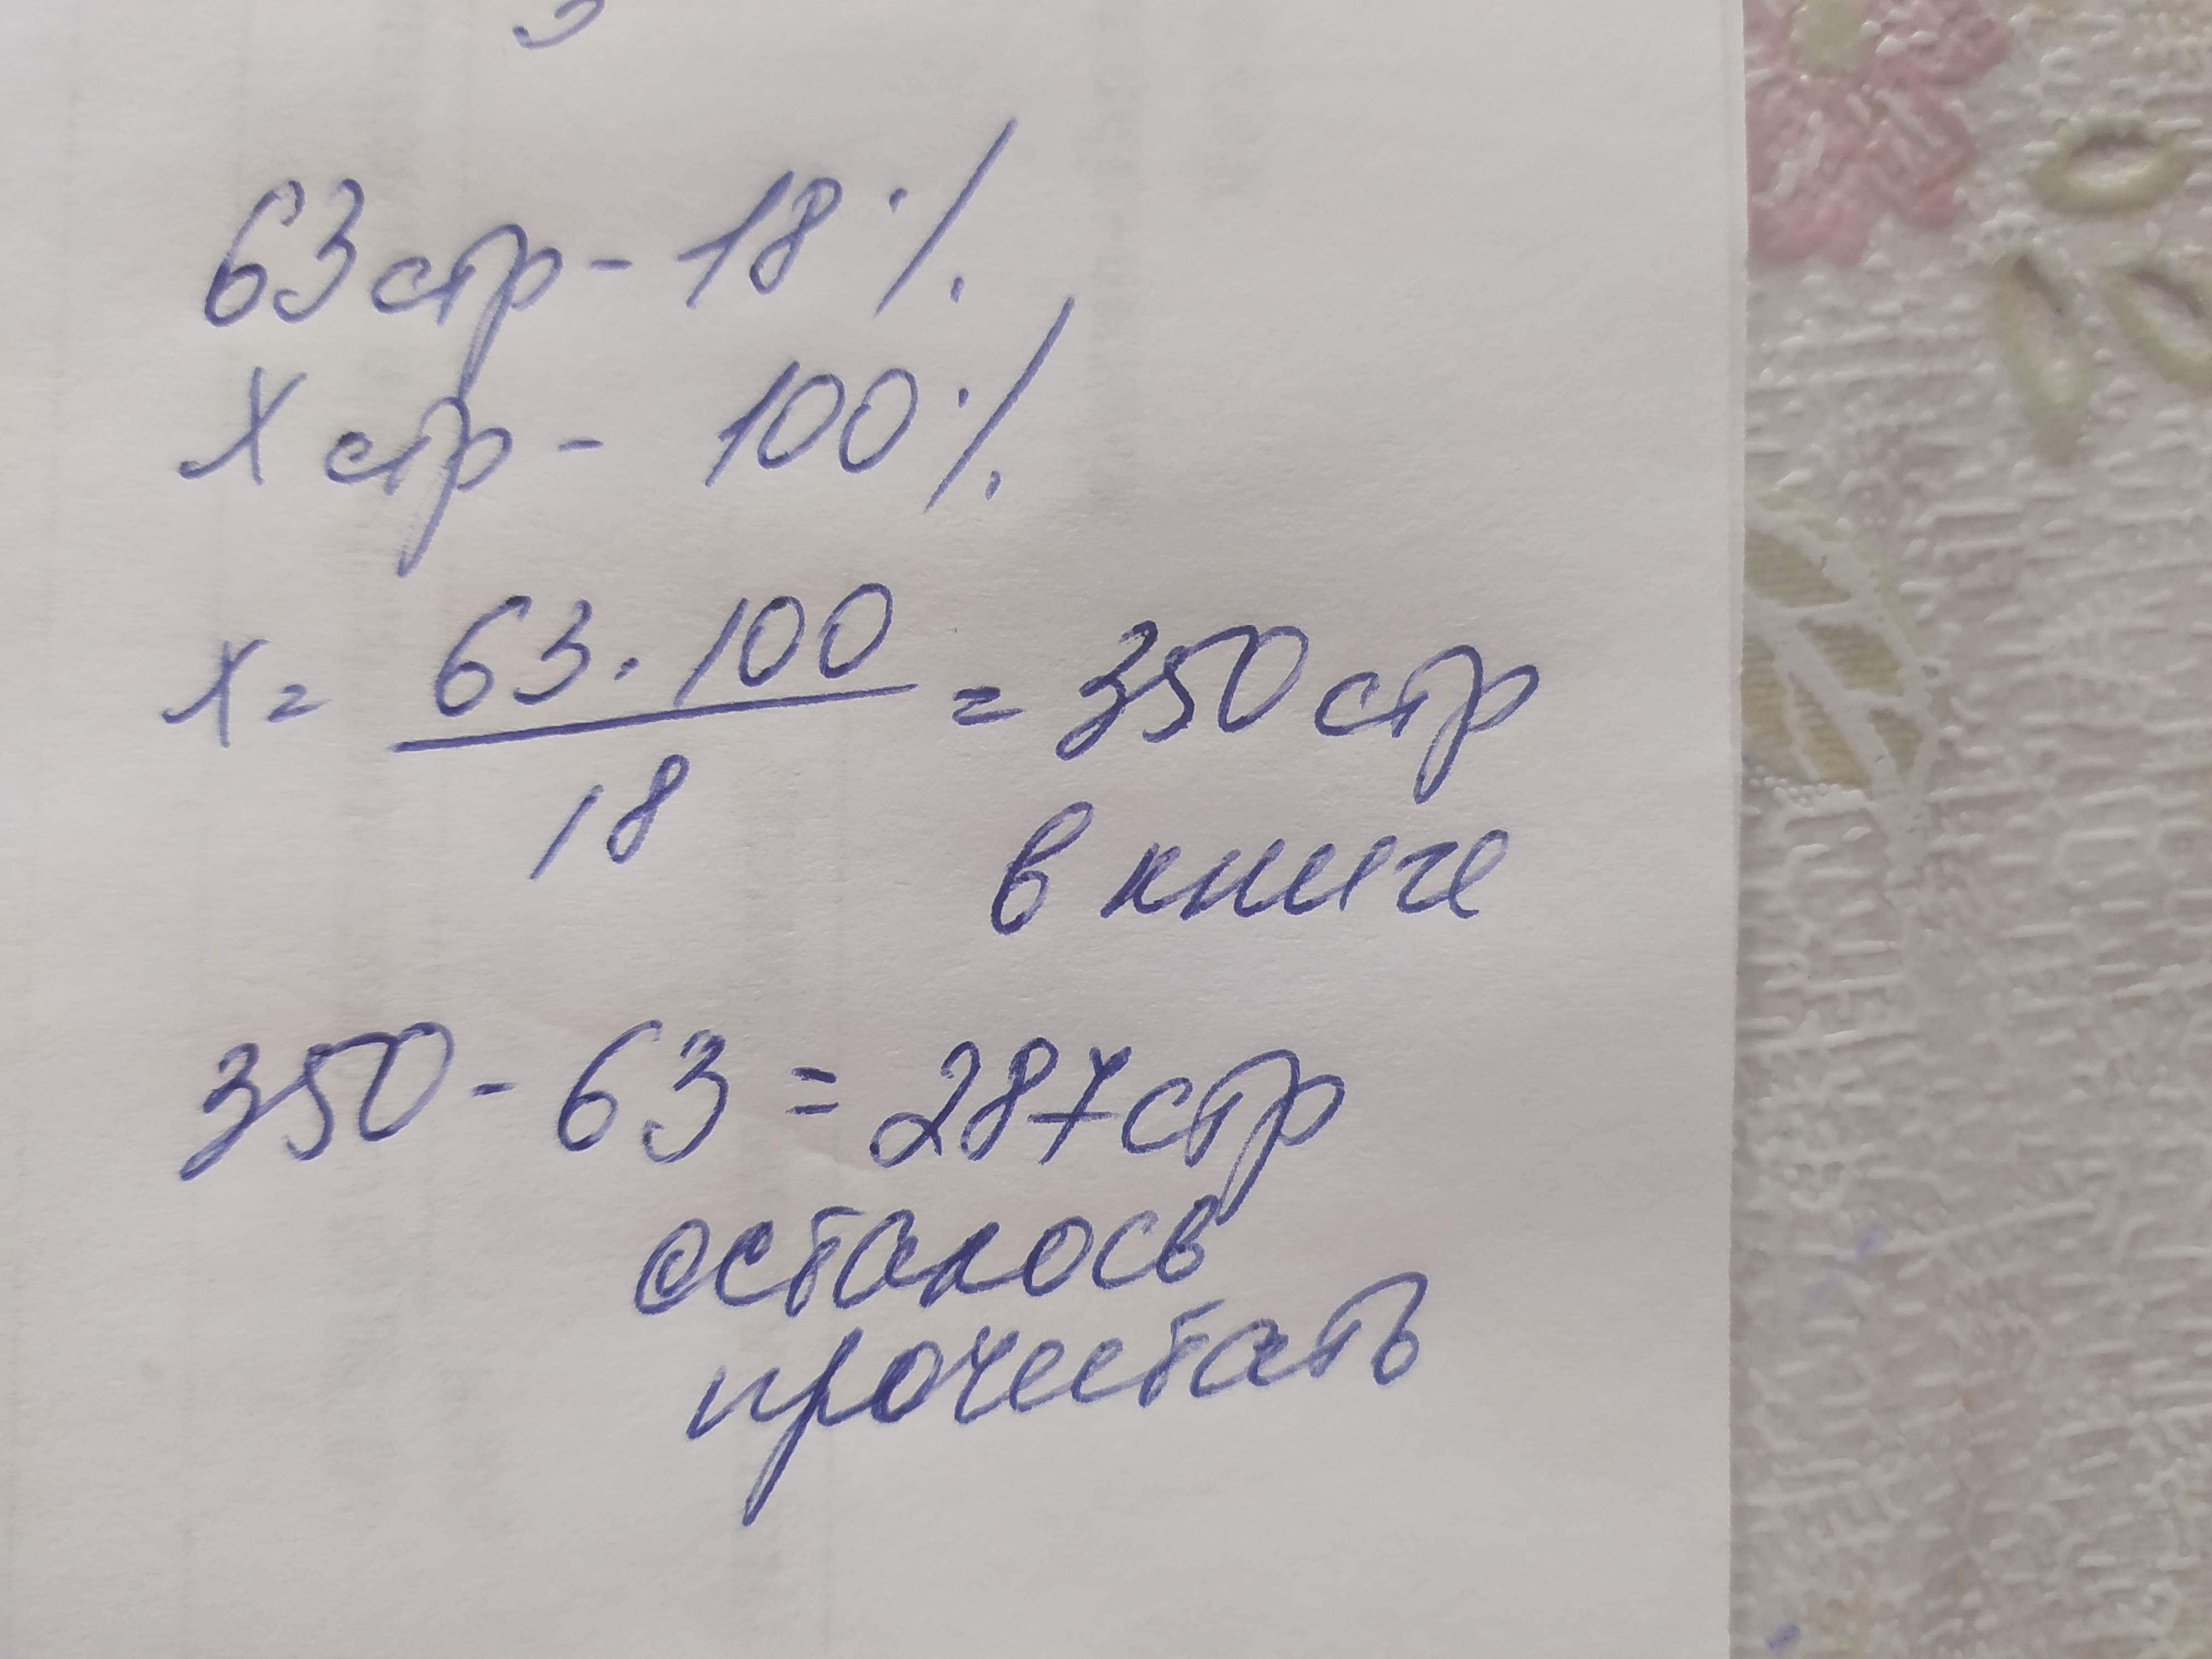 63 стр - 18%
х стр - 100%
х = 63 · 100 / 18 = 350 стр
в книге
350 - 63 = 287 стр
осталось
прочитать